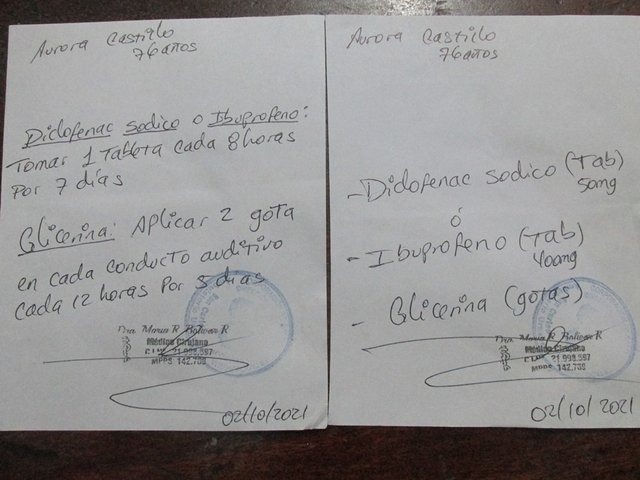 Aurora Castillo
76 años
Diclofenac sodico o Ibuprofeno:
Tomar 1 Tableta cada 8 horas
Por 7 días
Glicerina: Aplicar 2 gota
en cada conducto auditivo
cada 12 horas Por 5 dias
Dra. Maria R. Bolivar R
Médico Cirujano
MPPS 142.739
02/10/2021
Aurora Castillo
76 años
- Diclofenac sodico (Tab)
50mg
ó
- Ibuprofeno (Tab)
400mg
- Glicerina (gotas)
Dra. Maria R. Bolivar R
Médico Cirujano
MPPS 142.739
02/10/2021